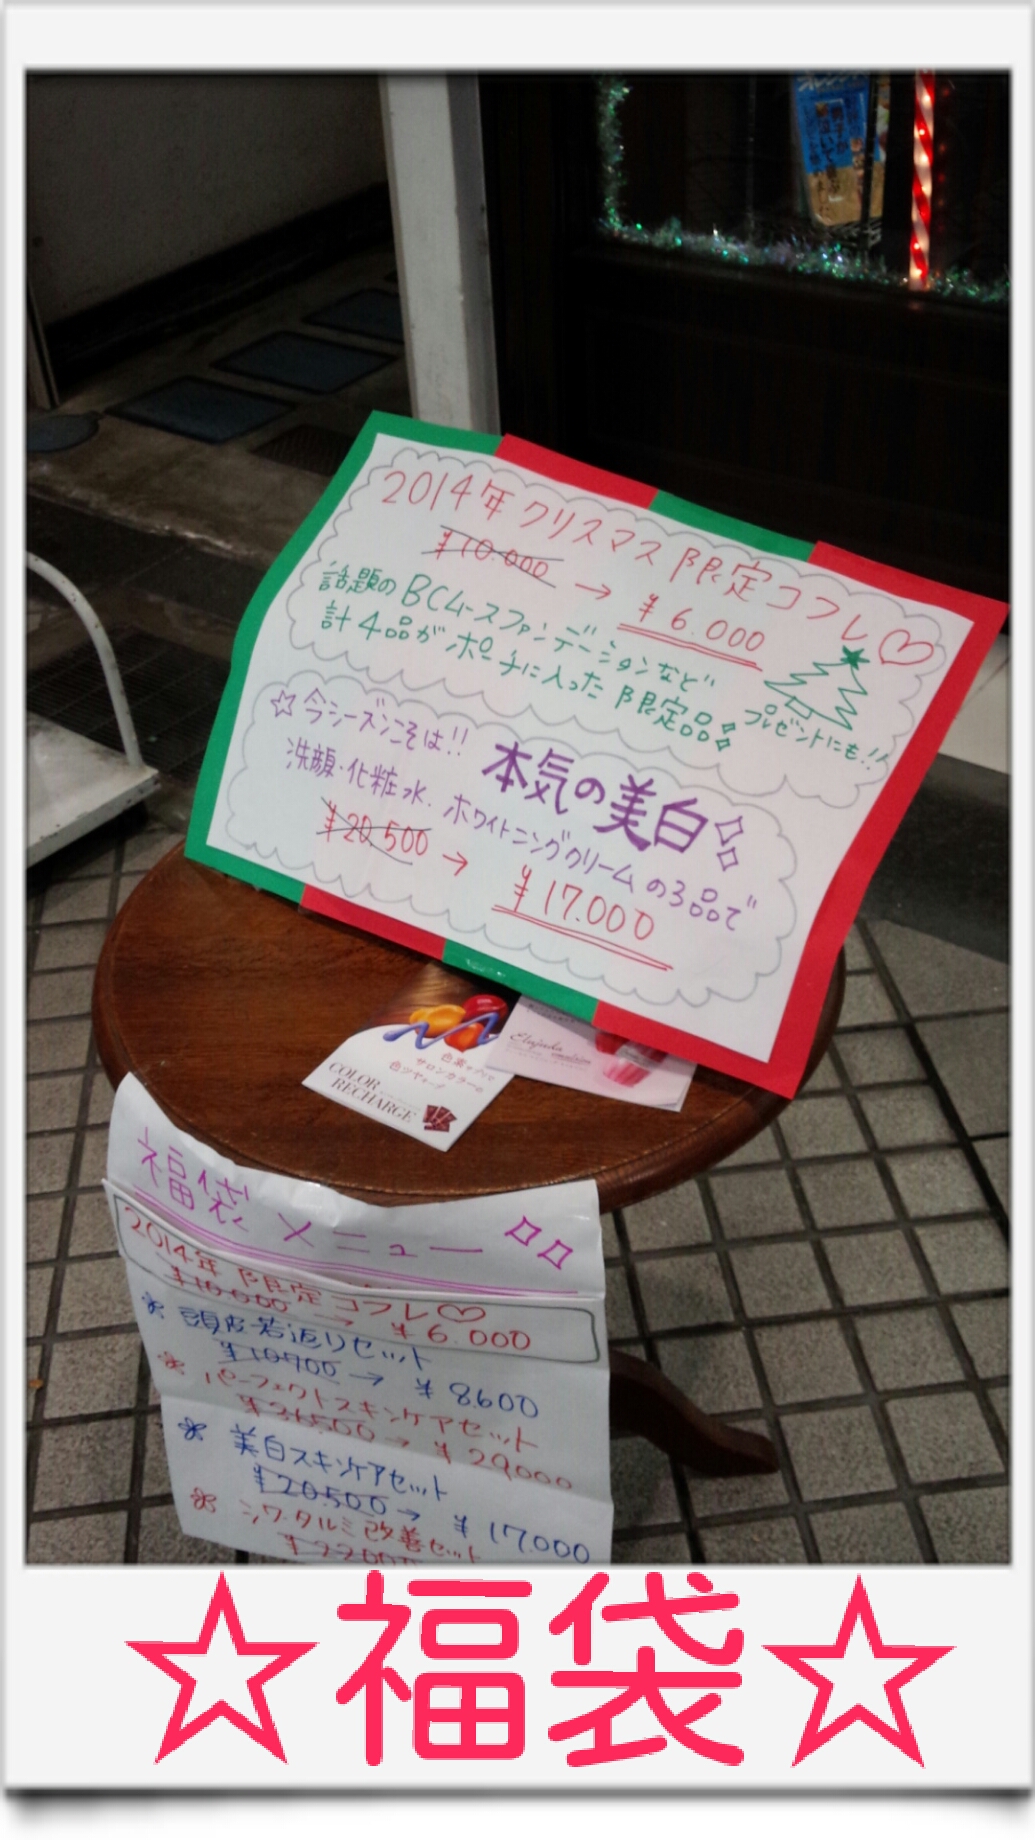 2014年クリスマス限定コフレ♡
¥10.000 → ¥6.000
話題のBCムースファンデーションなど
計4品がポーチに入った限定品
プレゼントにも!!
☆今シーズンこそは!! 本気の美白
洗顔・化粧水、ホワイトニングクリームの3品で
¥20.500 → ¥17.000
色ツヤ
サロンカラーの
COLOR
RECHARGE
福袋メニュー
2014年限定コフレ♡
¥10.000 → ¥6.000
頭皮若返りセット
¥10700 → ¥8600
パーフェクトスキンケアセット
→ ¥29000
美白スキンケアセット
¥20.500 → ¥17.000
シワ・タルミ改善セット
☆福袋☆